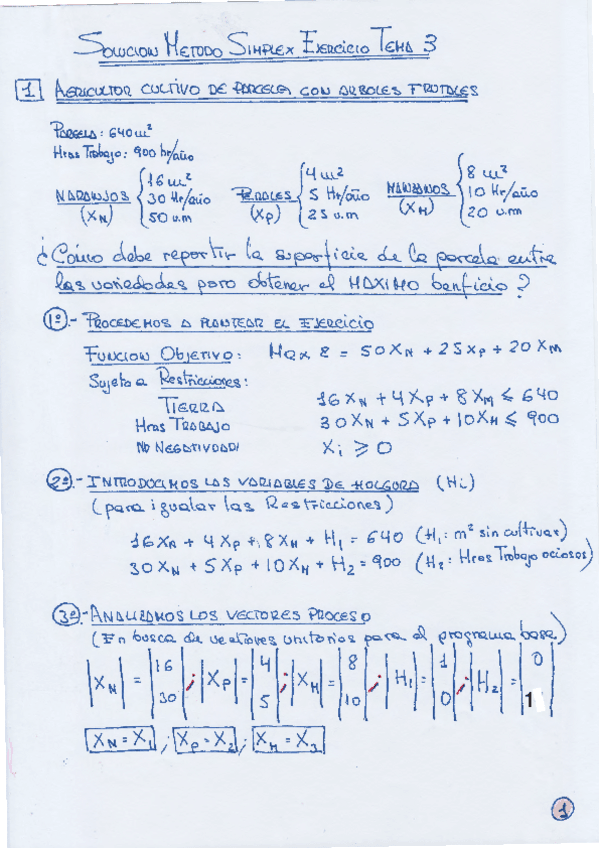 SOLUCION METODO SIMPLEX EJERCICIO TEMA 3
1 AGRICULTOR CULTIVO DE PARCELA CON ARBOLES FRUTALES
PARCELA: 640 m²
Hras TRABAJO: 900 hr/año
NARANJOS (X_N) { 16 m² 30 Hr/año 50 u.m
PERALES (X_P) { 4 m² 5 Hr/año 25 u.m
MANZANOS (X_M) { 8 m² 10 Hr/año 20 u.m
¿Cómo debe repartir la superficie de la parcela entre
las variedades para obtener el MAXIMO benficio?
1º.- PROCEDEMOS A PLANTEAR EL EJERCICIO
FUNCION OBJETIVO: Max Z = 50X_N + 25X_P + 20X_M
Sujeto a Restricciones:
TIERRA 16X_N + 4X_P + 8X_M ≤ 640
Hras TRABAJO 30X_N + 5X_P + 10X_M ≤ 900
NO NEGATIVIDAD: X_i ≥ 0
2º.- INTRODUCIMOS LAS VARIABLES DE HOLGURA (H_i)
(para igualar las Restricciones)
16X_N + 4X_P + 8X_M + H_1 = 640 (H_1: m² sin cultivar)
30X_N + 5X_P + 10X_M + H_2 = 900 (H_2: Hras Trabajo ociosas)
3º.- ANALIZAMOS LOS VECTORES PROCESO
(En busca de vectores unitarios para el programa base)
|X_N| = |16 30| ; |X_P| = |4 5| ; |X_M| = |8 10| ; |H_1| = |1 0| ; |H_2| = |0 1|
X_N = X_1 ; X_P = X_2 ; X_M = X_3
1